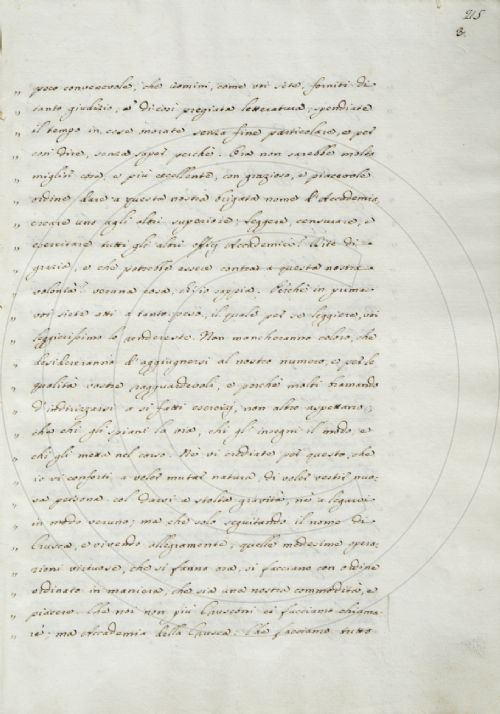 215
3.
„ poco convenevole, che uomini, come voi site, forniti di
„ tanto giudizio, e di così pregiata letteratura, spendiate
„ il tempo in cose onorate senza fine particolare, e per
„ così dire, senza saper perchè. Ora non sarebbe molto
„ miglior cosa, e più eccellente, con grazioso, e piacevole
„ ordine dare a questa nostra brigata nome d'Accademia,
„ creare uno agli altri superiore; leggere, censurare, e
„ esercitare tutti gli altri offizj Accademici? Dite di
„ grazia, e che potrebbe essere contra a questa nostra
„ volontà? veruna cosa, ch'io sappia. Perchè in prima
„ voi siete atti a tanto peso, il quale per se leggiero, voi
„ leggierissimo lo renderete. Non mancheranno coloro, che
„ desidereranno d'aggiugnersi al nostro numero, e per le
„ qualità vostre ragguardevoli, e perchè molti bramando
„ d'indirizzarsi a sì fatti esercizj, non altro aspettano,
„ che chi gli spiani la via, chi gl'insegni il modo, e
„ chi gli metta nel corso. Nè vi crediate per questo, che
„ io vi conforti a voler mutar natura, di voler vestir nuo-
„ va persona col darvi a stolta gravità, nè a legarvi
„ in modo veruno; ma che solo seguitando il nome di
„ Crusca, e vivendo allegramente, quelle medesime opera-
„ zioni virtuose, che si fanno ora, si facciano con ordine
„ ordinato in maniera, che sia una nostra commodità, e
„ piacere. Che noi non più Crusconi ci facciamo chiama-
„ re, ma Accademia della Crusca. Che facciamo tutto